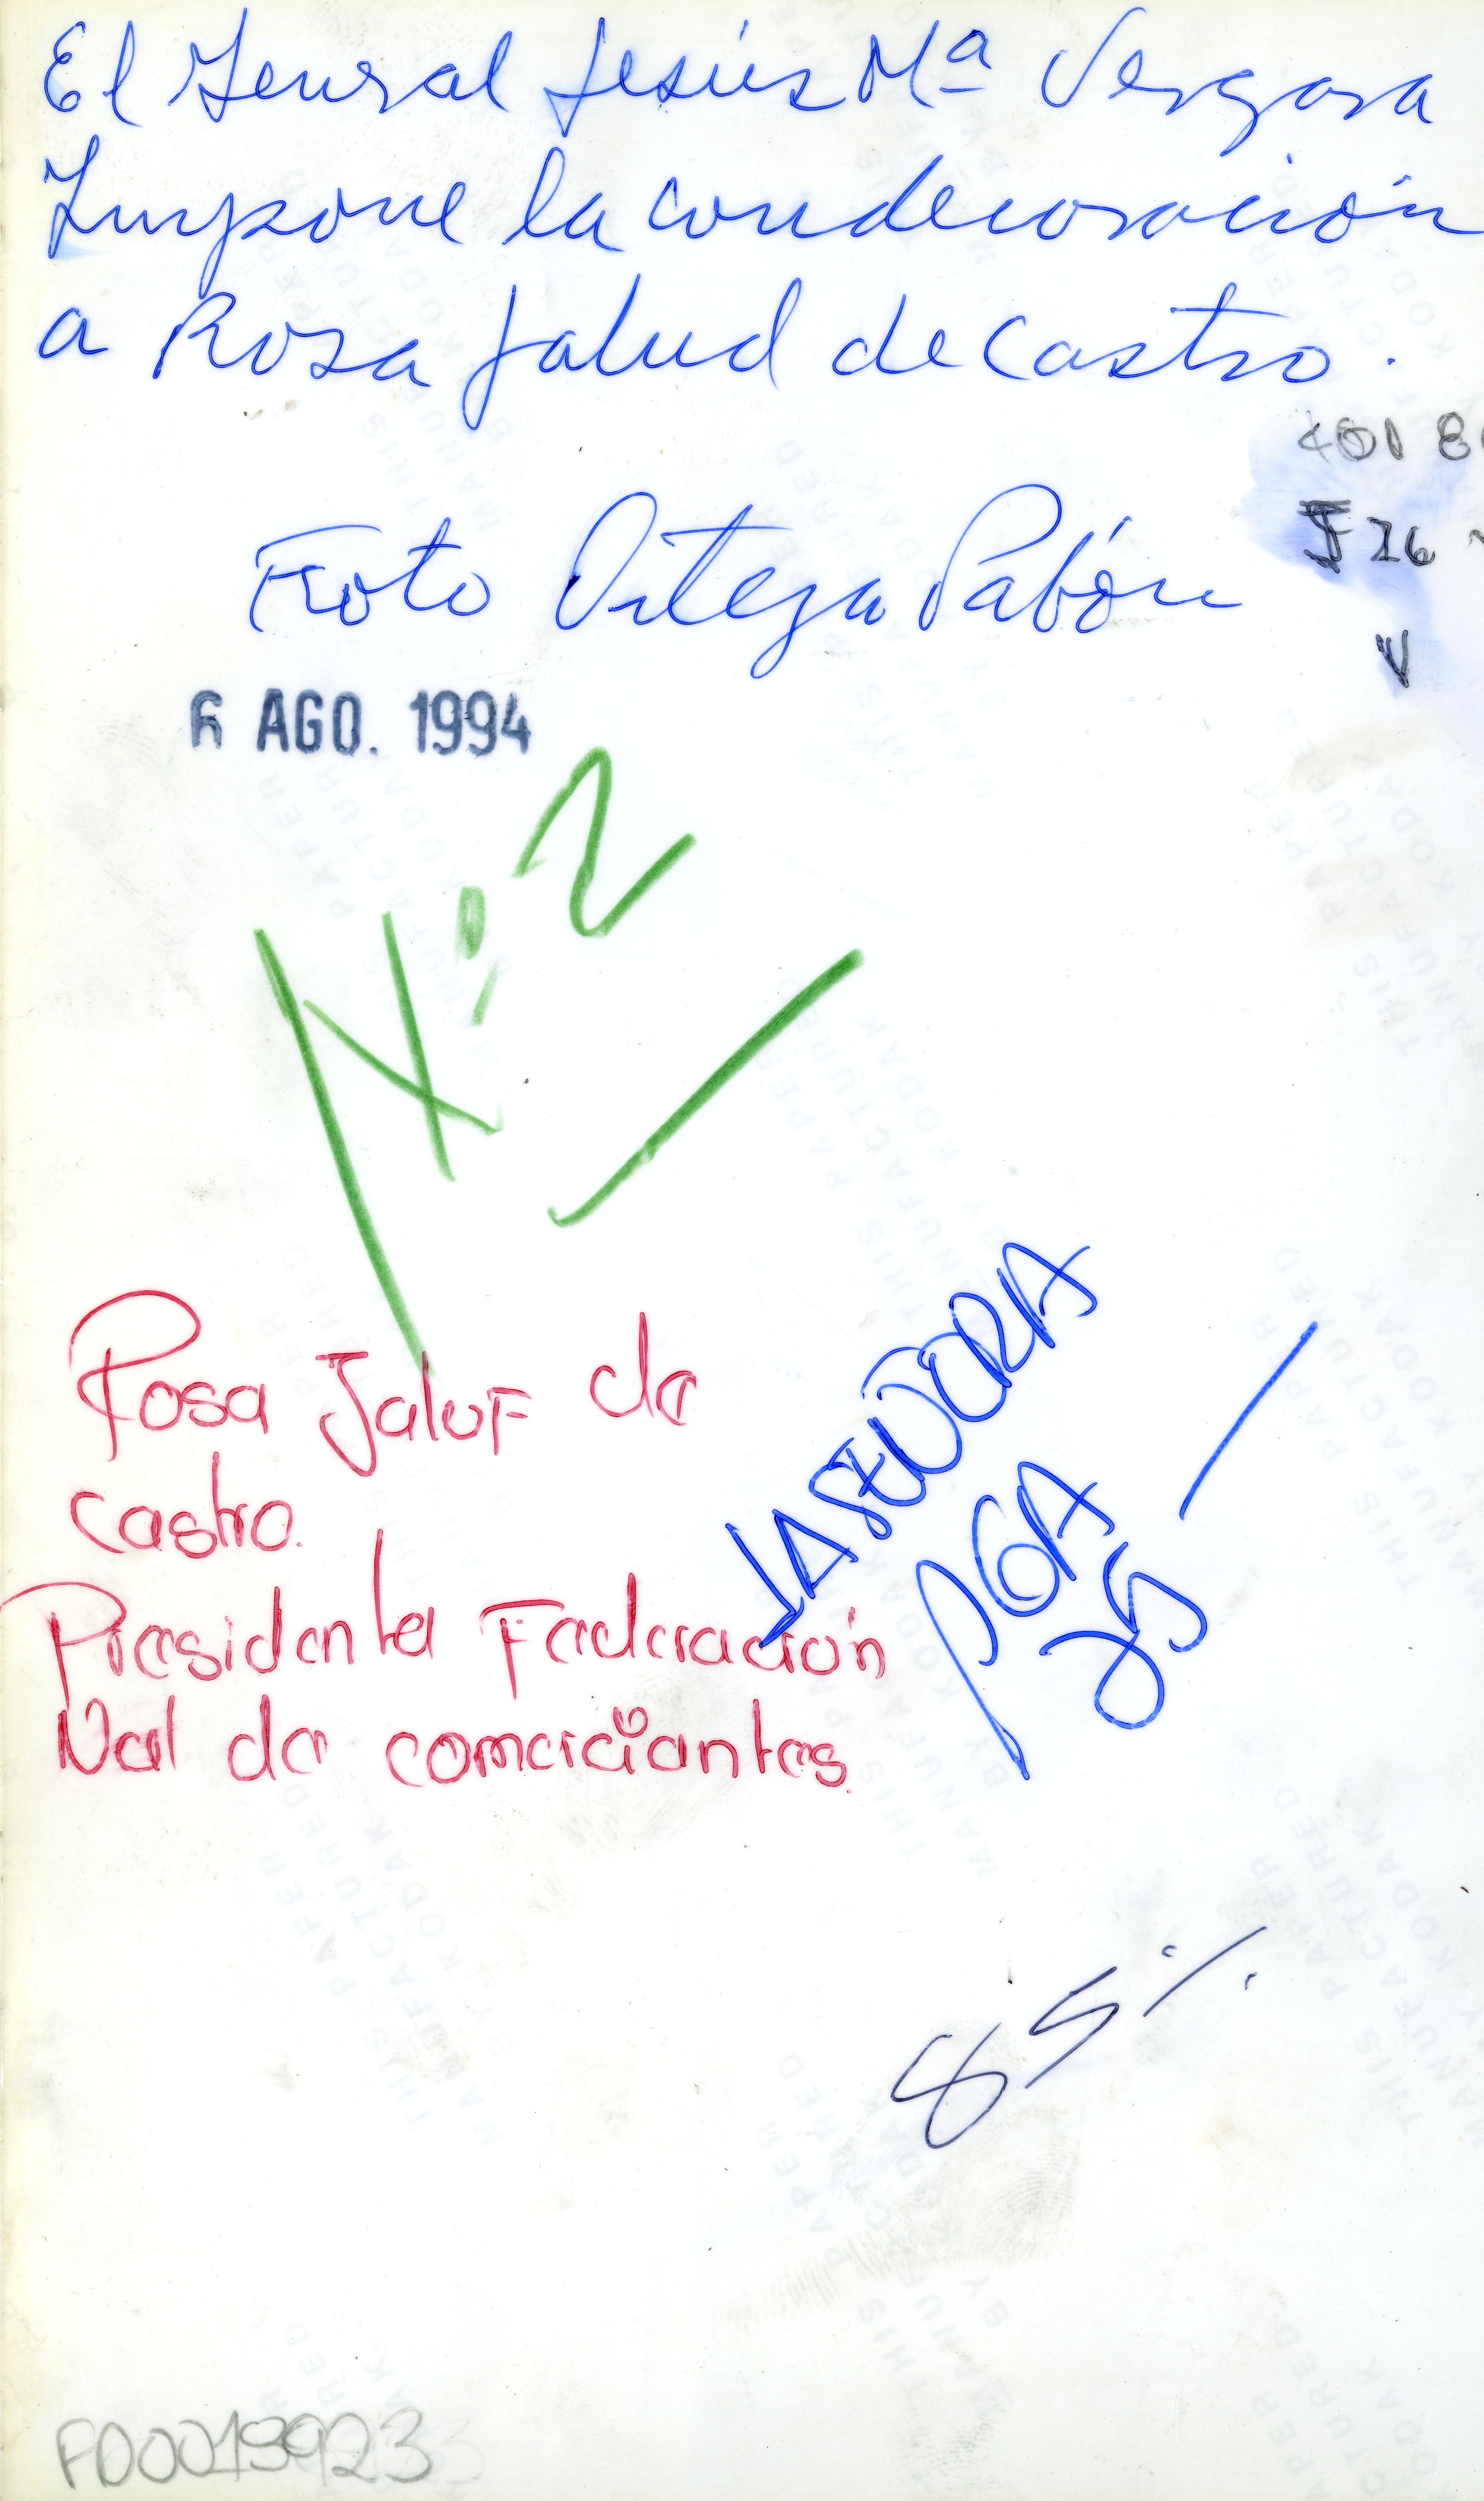 El General Jesús Mª Vergara
Impone la condecoración
a Rosa Jalud de Castro.
Foto Ortega Pabón
6 AGO. 1994
Nº 2
Rosa Jaluf de
castro.
Presidenta Federación
Nal de comerciantes.
VASEDORA
PGA
25
85%
FD0019923
THIS PAPER
MANUFACTURED
BY KODAK